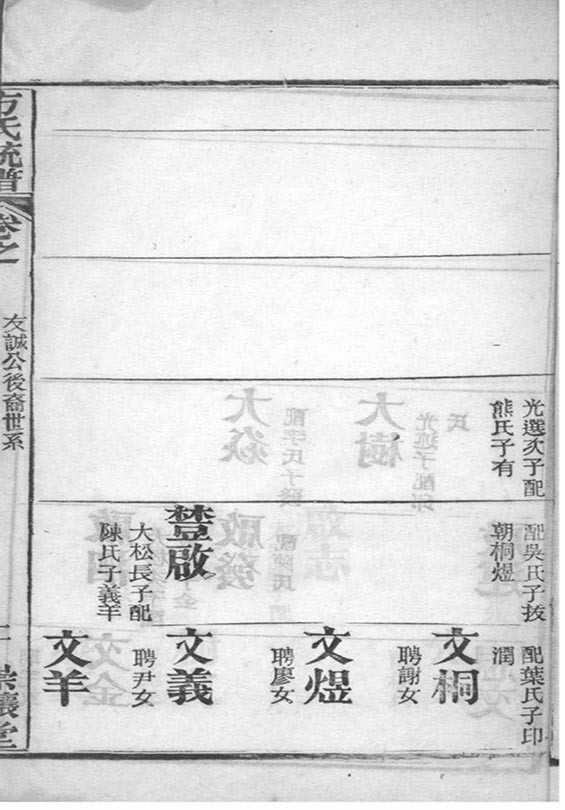 光選次子配
熊氏子有
配吳氏子拔
朝桐煜
啟
大松長子配
陳氏子義羊
配葉氏子印
潤
文桐
聘謝女
文煜
聘廖女
文義
聘尹女
文羊
方氏統譜
卷之
友誠公後裔世系